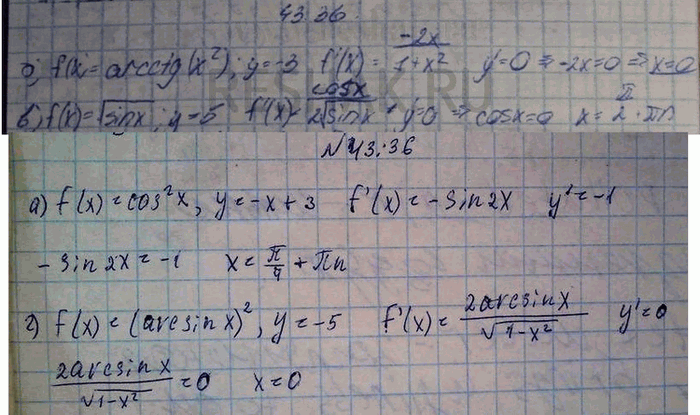 43.36.
б) f(x) = arcctg(x²); y = -3 f'(x) = -2x/1+x² y' = 0 ⇒ -2x = 0 ⇒ x = 0
в) f(x) = √sinx; y = 5 f'(x) = cosx/2√sinx; y' = 0 ⇒ cosx = 0 x = π/2 + πn
RESHAK.RU
N 43.36
а) f(x) = cos²x, y = -x + 3 f'(x) = - sin 2x y' = -1
- sin 2x = -1 x = π/4 + πn
г) f(x) = (arcsin x)², y = -5 f'(x) = 2arcsin x/√1-x² y' = 0
2arcsin x/√1-x² = 0 x = 0